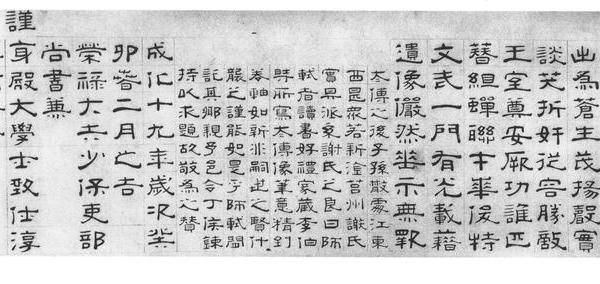 出為蒼生茂揚聲實
談笑折奸從容勝敵
王室尊安厥功誰匹
簪組蟬聯才華俊特
文武一門有光載籍
遺像儼然垂示無斁
太傅之後子孫散處江東
西最眾若新淦莒州謝氏
實其派系謝氏之良曰師
軾者讀書好禮家藏李伯
時所寫太傅像筆意精到
卷軸如新非嗣世之賢什
襲之謹能如是乎師軾間
託其鄉親予邑令丁侯鍊
持以求題故敬為之贊
成化十九年歲次癸
卯春二月之吉
榮祿大夫少保吏部
尚書兼
謹身殿大學士致仕淳